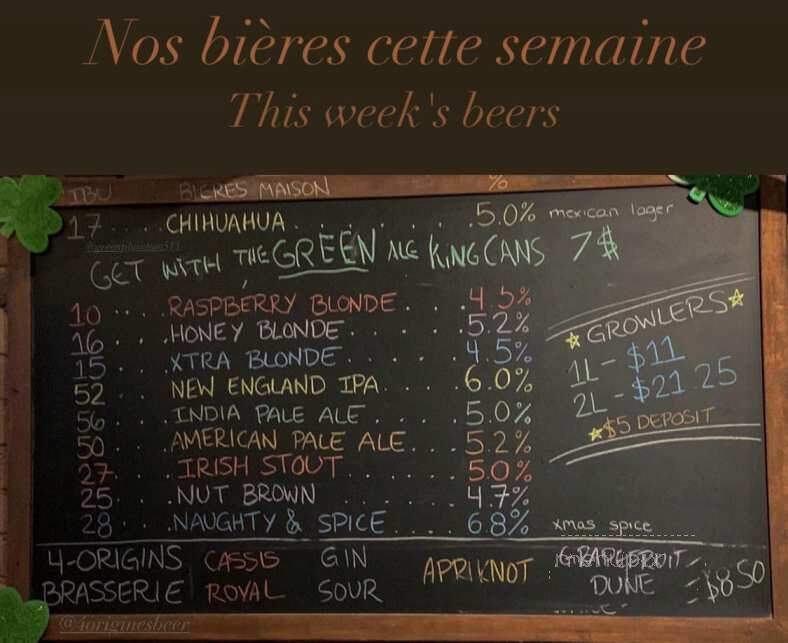 Nos bières cette semaine
This week's beers
IBU BIERES MAISON %
17 ..... CHIHUAHUA. . . . . . .5.0% mexican lager
@greenpluginn513
GET WITH THE GREEN ALE KING CANS 7$
10 .. . .RASPBERRY BLONDE . . . .4.5%
16. . . .HONEY BLONDE. . . . . .5.2%
15. . . .XTRA BLONDE . . . . . 4.5%
52 NEW ENGLAND IPA. . . .6.0%
56. . . .INDIA PALE ALE . . . . 5.0%
50 .AMERICAN PALE ALE. . .5.2%
27. . . .IRISH STOUT. . . . . .5.0%
25. . . .NUT BROWN . . . . . . 4.7%
28 . . .NAUGHTY & SPICE. . . . 6.8% xmas spice
GROWLERS
1L - $11
2L - $21.25
$5 DEPOSIT
4-ORIGINS BRASSERIE
CASSIS ROYAL
GIN SOUR
APRIKNOT
GRAPEFRUIT DUNE
$8.50
@4originesbeer